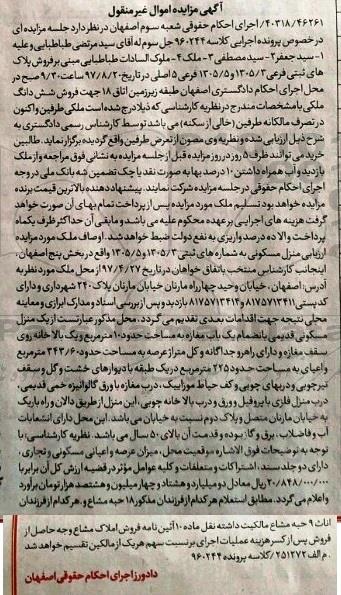 آگهی مزایده اموال غیر منقول
۴۰۳۱۸/۴۶۲۶۱/ اجرای احکام حقوقی شعبه سوم اصفهان در نظر دارد جلسه مزایده ای
در خصوص پرونده اجرایی کلاسه ۹۶۰۲۴۴ جل سوم له آقای سید مرتضی طباطبایی و علیه
۱- سید جعفر ۲- سید مصطفی ۳- ملک ۴- ملوک السادات طباطبایی مبنی بر فروش پلاک
های ثبتی فرعی ۱۳۰۵/۳ و ۱۳۰۵/۵ فرعی ۵ اصلی در تاریخ ۹۷/۸/۲۰ ساعت ۹/۳۰ صبح در
محل اجرای احکام دادگستری اصفهان طبقه زیرزمین اتاق ۱۸ جهت فروش شش دانگ
ملکی با مشخصات مندرج در نظریه کارشناسی که ذیلا درج شده است ملکی طرفین و اکنون
در تصرف مالکانه طرفین (خالی از سکنه) می باشد توسط کارشناس رسمی دادگستری به
شرح ذیل ارزیابی شده و نظریه وی مصون از تعرض طرفین واقع گردیده برگزار نماید. طالبین
خرید می توانند ظرف ۵ روز در روز مزایده قبل از جلسه مزایده به نشانی فوق مراجعه و از ملک
بازدید و آب همراه داشتن ۱۰ درصد بها به صورت نقد یا چک تضمین شده بانک ملی در وجه
اجرای احکام حقوقی در جلسه مزایده شرکت نمایند. پیشنهاد دهنده بالاترین قیمت برنده
مزایده خواهد بود تسلیم ملک مورد مزایده پس از پرداخت تمام بهای آن صورت خواهد
گرفت هزینه های اجرایی بر عهده محکوم علیه می باشد و مابقی آن حداکثر ظرف یکماه
پرداخت و الا ده درصد واریزی به نفع دولت ضبط خواهد شد. اوصاف ملک مورد مزایده
ارزیابی منزل مسکونی به شماره های ثبتی ۱۳۰۵/۳ و ۱۳۰۵/۵ واقع در بخش پنج اصفهان،
اینجانب کارشناس منتخب باتفاق خواهان در تاریخ ۹۷/۴/۲۷ از محل ملک مورد نظر به
آدرس: اصفهان، خیابان وحید چهارراه مارنان خیابان مارنان پلاک ۲۴۰ شهرداری و دارای
کدپستی ۸۱۷۵۷۱۳۴۱۱ و ۸۱۷۵۷۱۳۴۱۴ بازدید و پس از بررسی اسناد و مدارک ابرازی و معاینه
محلی نتیجه جهت اقدامات بعدی تقدیم می گردد. محل مذکور عبارتست از یک منزل
مسکونی قدیمی بانضمام یک باب مغازه به مساحت حدود ۱۰ مترمربع و یک بالا خانه روی
سقف مغازه و دارای راهرو جداگانه و کل متراژ عرصه به مساحت حدود ۳۴۳/۶۰ مترمربع
و اعیانی به مساحت حدود ۲۲۵ مترمربع در یک طبقه با دیوارهای خشت و گل و سقف
تیرچوبی و دربهای چوبی و کف حیاط موزاییک، درب مغازه با ورق گالوانیزه خمی قدیمی،
درب منزل فلزی با پروفیل و ورق و درب بالا خانه چوبی، این منزل از طریق دالان و راه باریک
به خیابان مارنان متصل و پلاک دوم نسبت به خیابان می باشد. این محل دارای انشعابات
آب و فاضلاب، برق و گاز بوده و قدمت آن بالای ۵۰ سال می باشد. نظریه کارشناسی: با
توجه به توضیحات فوق الاشاره موقعیت محل، میزان عرصه و اعیانی مسکونی و تجاری،
دارای دو جلد سند، اشتراکات و متعلقات و کلیه عوامل مؤثر در قضیه ارزش کل آن برابر با
۲۰/۸۴۸/۰۰۰/۰۰۰ ریال معادل دو میلیارد و هشتاد و چهار میلیون و هشتصد هزار تومان برآورد
و اعلام می گردد. مطابق استعلام هر کدام از فرزندان مذکور ۱۸ حبه مشاع و . هر کدام از فرزندان
اناث ۹ حبه مشاع مالکیت داشته نقل ماده ۱۰ آئین نامه فروش املاک مشاع وجه حاصل از
فروش پس از کسر هزینه عملیات اجرای بر نسبت سهم هر یک از مالکین تقسیم خواهد شد
. م الف ۲۵۱۲۷۲/ کلاسه پرونده ۹۶۰۲۴۴
دادورز اجرای احکام حقوقی اصفهان